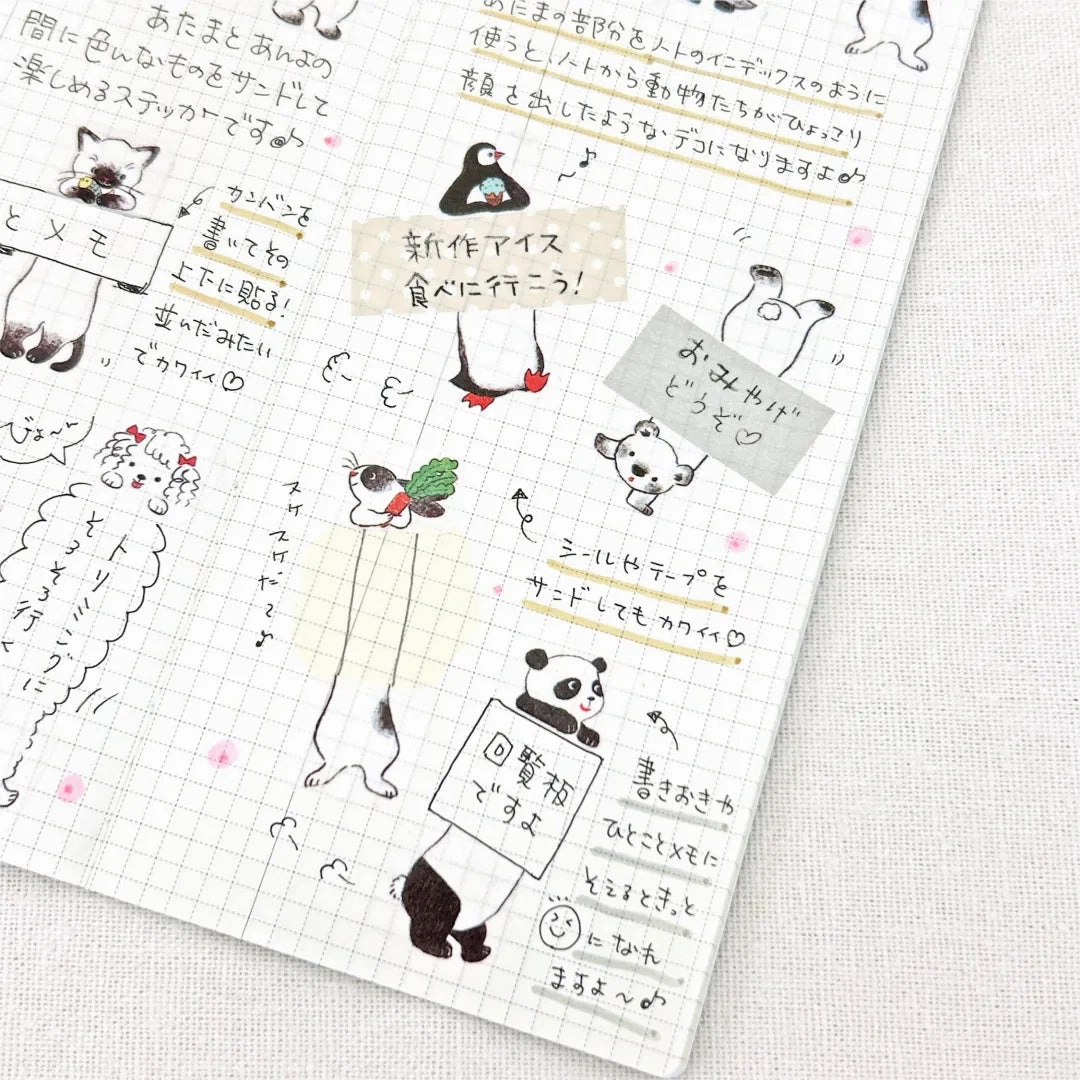 あたまとあんよの
間に色んなものをサンドして
楽しめるステッカーです♪
あたまの部分をノートのインデックスのように
使うと、ノートから動物たちがひょっこり
顔を出したようなデコになりますよ♪
とメモ
カンバンを
書いてその
上下に貼る!
並んだみたい
でカワイイ♡
新作アイス
食べに行こう!
おみやげ
どうぞ♡
シールやテープを
サンドしてもカワイイ♡
びよ〜ん
トリミングに
そろそろ行く
スケスケだ〜♪
回覧板
ですよ
書きおきや
ひとことメモに
そえるときっと
になれ
ますよ〜♪